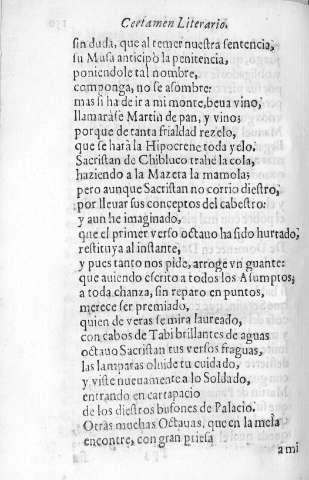 Certamen Literario.
sin duda, que al temer nuestra sentencia,
su Musa anticipò la penitencia,
poniendole tal nombre,
componga, no se asombre:
mas si ha de ir a mi monte, beua vino,
llamaràse Martin de pan, y vino;
porque de tanta frialdad rezelo,
que se harà la Hipocrene toda yelo.
Sacristan de Chibluco trahe la cola,
haziendo a la Mazeta la mamola;
pero aunque Sacristan no corrio diestro,
por lleuar sus conceptos del cabestro:
y aun he imaginado,
que el primer verso octauo ha sido hurtado,
restituya al instante,
y pues tanto nos pide, arroge vn guante:
que auiendo escrito a todos los Asumptos,
a toda chanza, sin reparo en puntos,
merece ser premiado,
quien de veras se mira laureado,
con cabos de Tabi brillantes de aguas
octauo Sacristan tus versos fraguas,
las lamparas oluide tu cuidado,
y viste nueuamente a lo Soldado,
entrando en cartapacio
de los diestros bufones de Palacio.
Otras muchas Octauas, que en la mesa
encontrè, con gran priesa
a mi